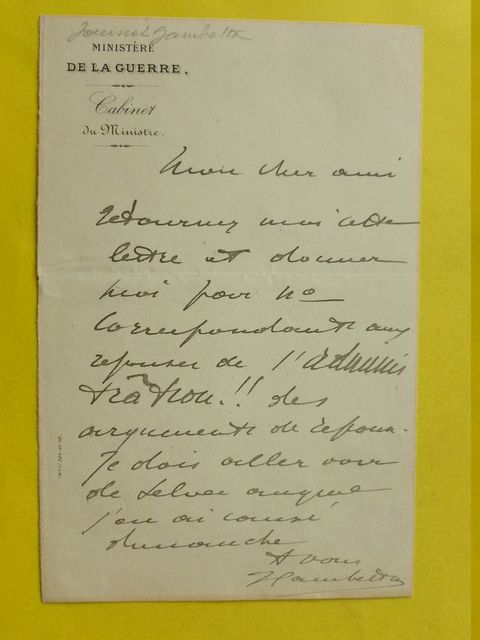 Gambetta
MINISTÈRE
DE LA GUERRE.
Cabinet
du Ministre.
Mon cher ami
retournez moi cette
lettre et donner
moi pour no
correspondants aux
reponses de l'adminis
tration!! des
arguments de repon.
Je dois aller voir
de Selves auquel
j'en ai causé
dimanche
A vous
Gambetta